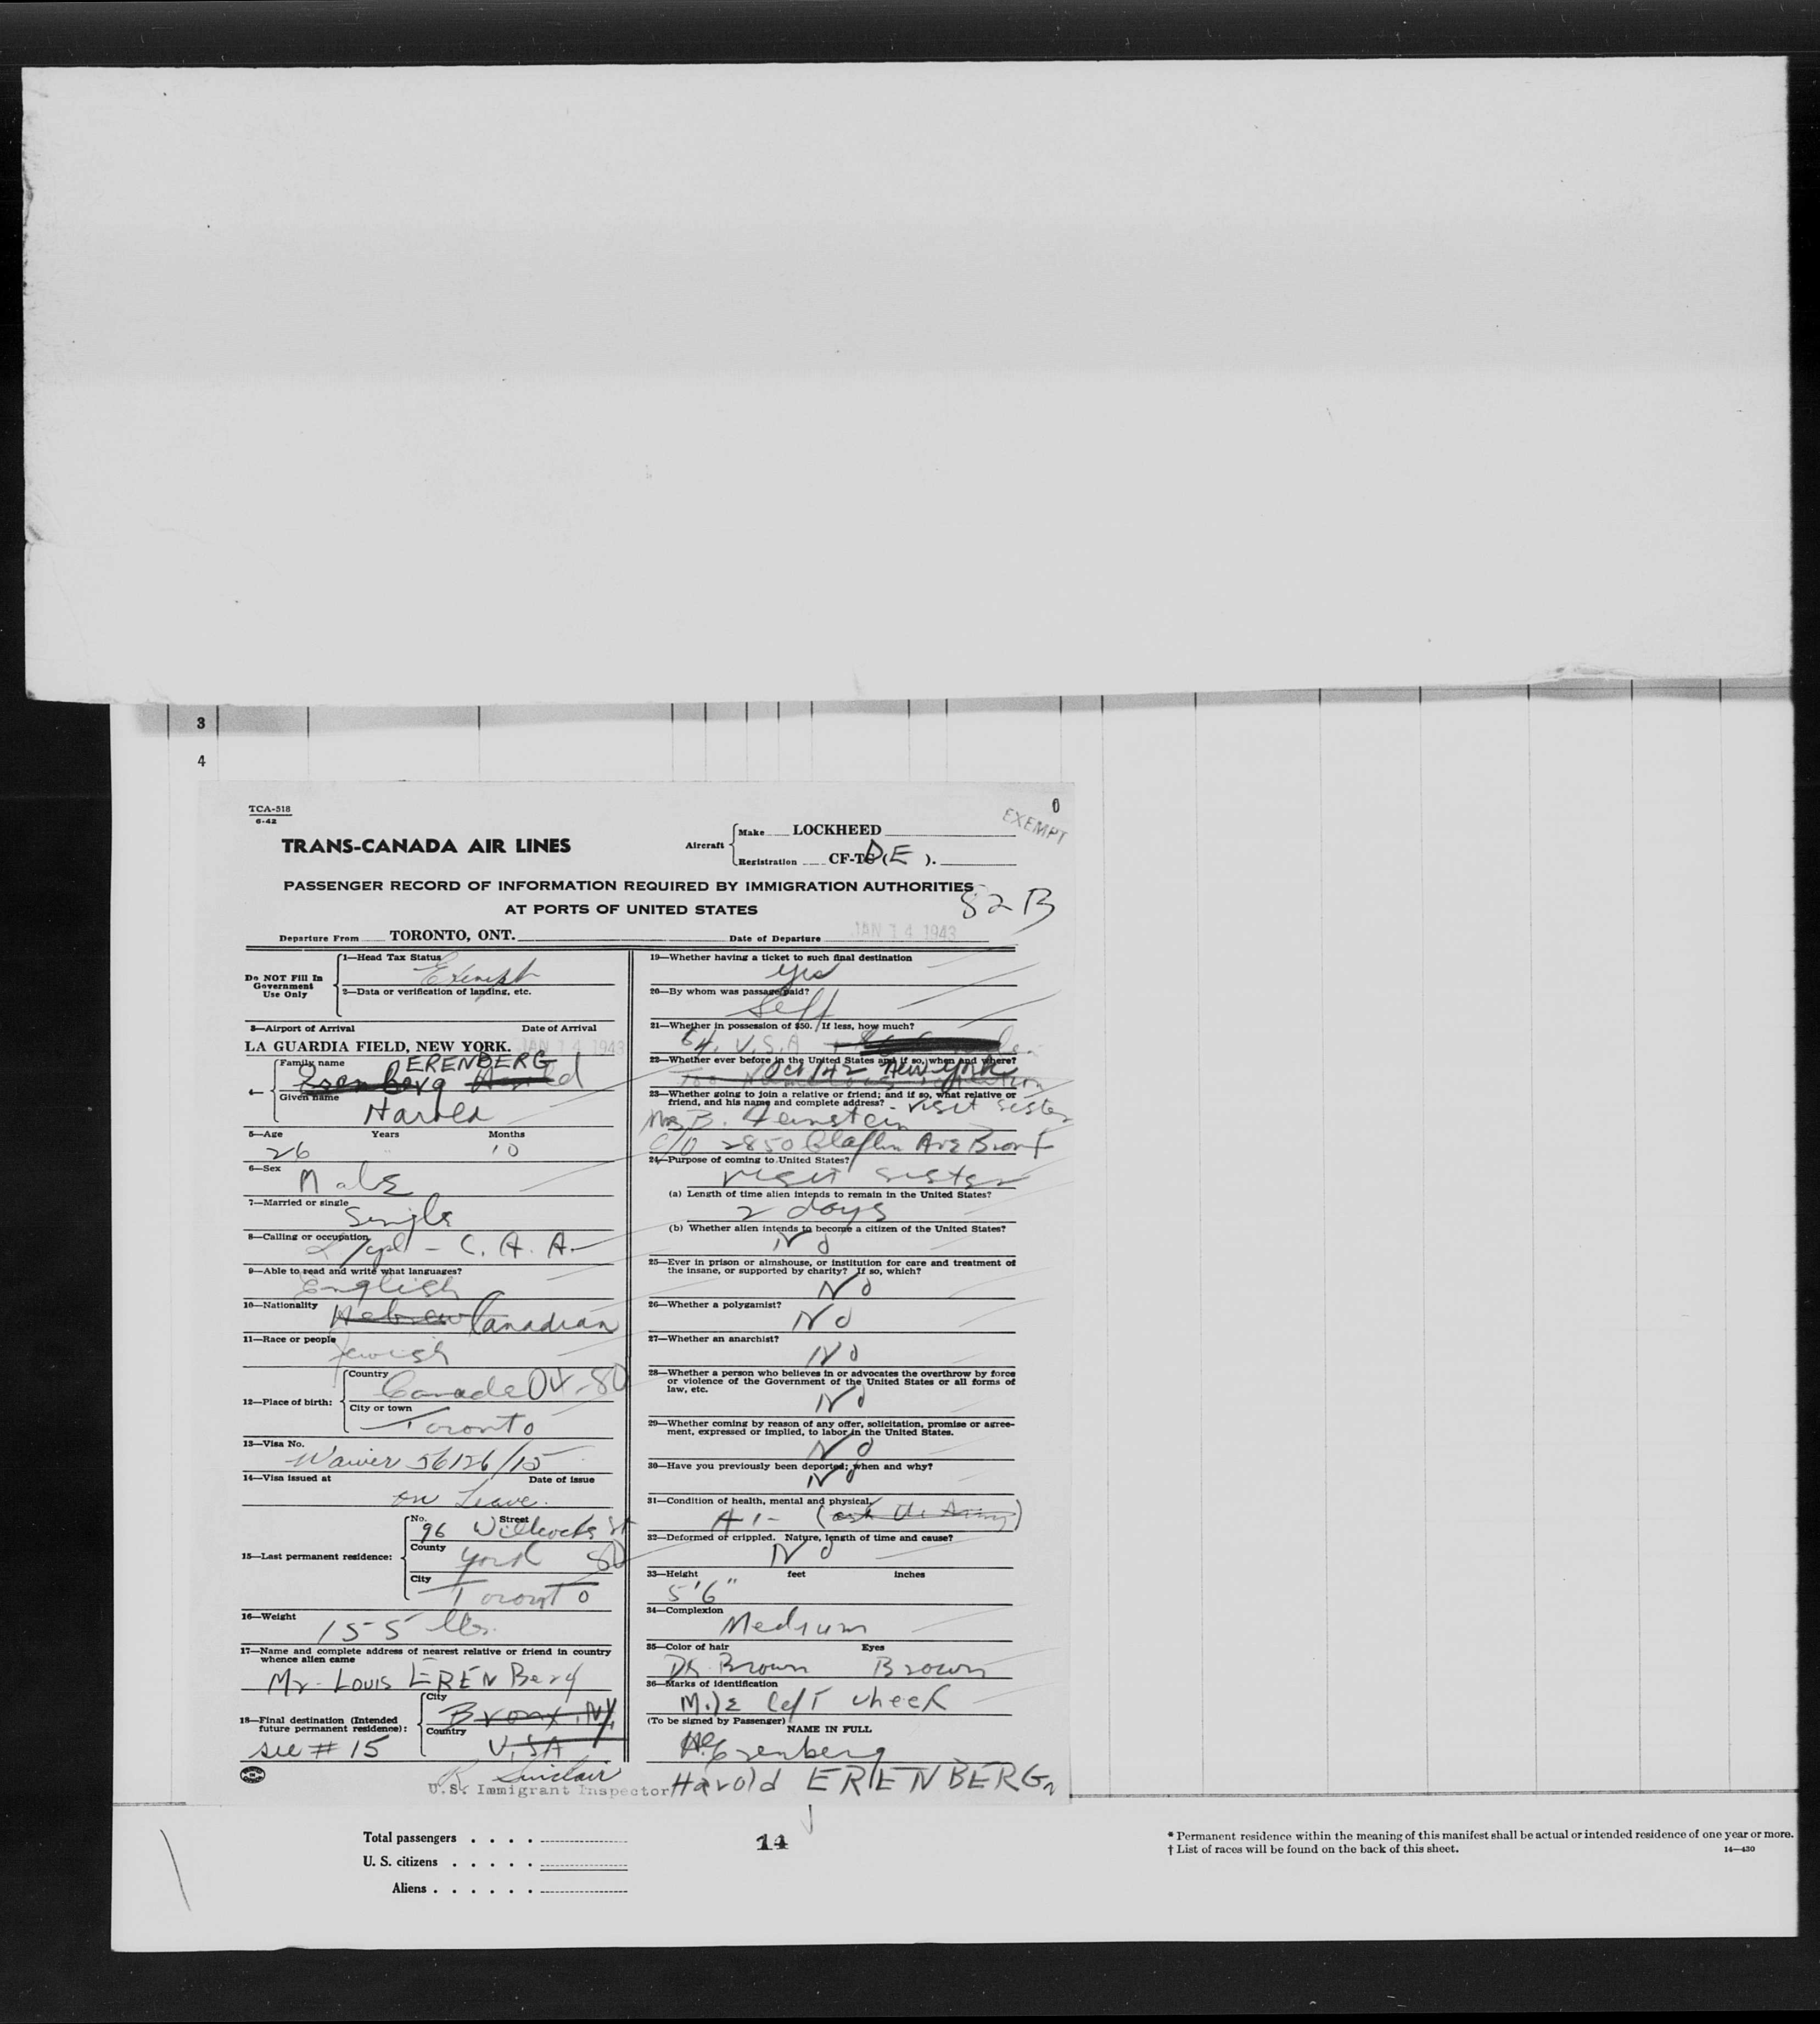 3
4
TCA-518
6-42
0
EXEMPT
TRANS-CANADA AIR LINES
Aircraft
Make LOCKHEED
Registration CF-TC (DE ).
PASSENGER RECORD OF INFORMATION REQUIRED BY IMMIGRATION AUTHORITIES
AT PORTS OF UNITED STATES
82 B
Departure From TORONTO, ONT.
Date of Departure JAN 14 1943
Do NOT Fill In Government Use Only
1—Head Tax Status
Exempt
2—Data or verification of landing, etc.
3—Airport of Arrival Date of Arrival
LA GUARDIA FIELD, NEW YORK. JAN 14 1943
Family name ERENBERG
Erenberg Harold
Given name
Harold
5—Age Years Months
26 10
6—Sex
Male
7—Married or single
Single
8—Calling or occupation
L/Cpl - C. A. A.
9—Able to read and write what languages?
English
10—Nationality
Hebrew Canadian
11—Race or people
Jewish
12—Place of birth:
Country
Canada 04-80
City or town
Toronto
13—Visa No.
Waiver 56126/15
14—Visa issued at Date of issue
on Leave.
15—Last permanent residence:
No. Street
96 Willcocks St
County
York 80
City
Toronto
16—Weight
155 lbs.
17—Name and complete address of nearest relative or friend in country
whence alien came
Mr. Louis ERENBerg
18—Final destination (Intended
future permanent residence):
see # 15
City
Bronx, N.Y.
Country
U.S.A
R Sinclair
U.S. Immigrant Inspector
19—Whether having a ticket to such final destination
yes
20—By whom was passage paid?
Self
21—Whether in possession of $50. If less, how much?
64. U.S.A
22—Whether ever before in the United States and if so, when and where?
Oct/42 New York
23—Whether going to join a relative or friend; and if so, what relative or
friend, and his name and complete address? - visit sister
Mrs B. Feinstein
C/O 2850 Claflin Ave Bronx
24—Purpose of coming to United States?
visit sister
(a) Length of time alien intends to remain in the United States?
2 days
(b) Whether alien intends to become a citizen of the United States?
No
25—Ever in prison or almshouse, or institution for care and treatment of
the insane, or supported by charity? If so, which?
No
26—Whether a polygamist?
No
27—Whether an anarchist?
No
28—Whether a person who believes in or advocates the overthrow by force
or violence of the Government of the United States or all forms of
law, etc.
No
29—Whether coming by reason of any offer, solicitation, promise or agree-
ment, expressed or implied, to labor in the United States.
No
30—Have you previously been deported; when and why?
No
31—Condition of health, mental and physical,
A-1- (ask the Army)
32—Deformed or crippled. Nature, length of time and cause?
No
33—Height feet inches
5'6"
34—Complexion
Medium
35—Color of hair Eyes
Dk. Brown Brown
36—Marks of identification
Mole left cheek
(To be signed by Passenger)
NAME IN FULL
H Erenberg
Harold ERENBERG
Total passengers . . . .
U. S. citizens . . . . .
Aliens . . . . . .
14
* Permanent residence within the meaning of this manifest shall be actual or intended residence of one year or more.
† List of races will be found on the back of this sheet.
14—430